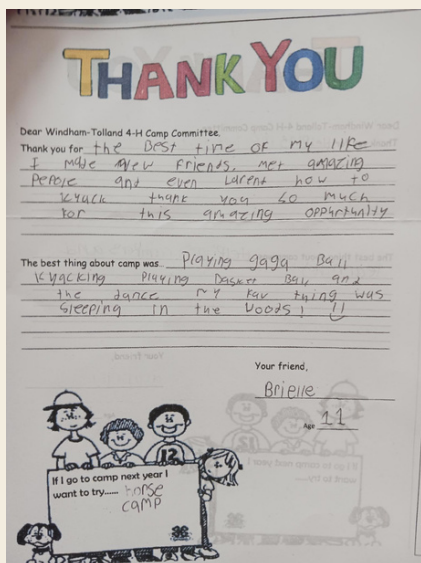 THANK YOU
Dear Windham-Tolland 4-H Camp Committee,
Thank you for the Best time of my life
I made New Friends, met amazing
Pepole and even Larent how to
Kyack thank you so much
for this amazing opportunity
The best thing about camp was.. Playing gaga Ball
Kyacking Playing Basket Ball and
the dance my Fav thing was
Sleeping in the woods! !!
Your friend,
Brielle
Age 11
12
If I go to camp next year I
want to try...... horse
camp